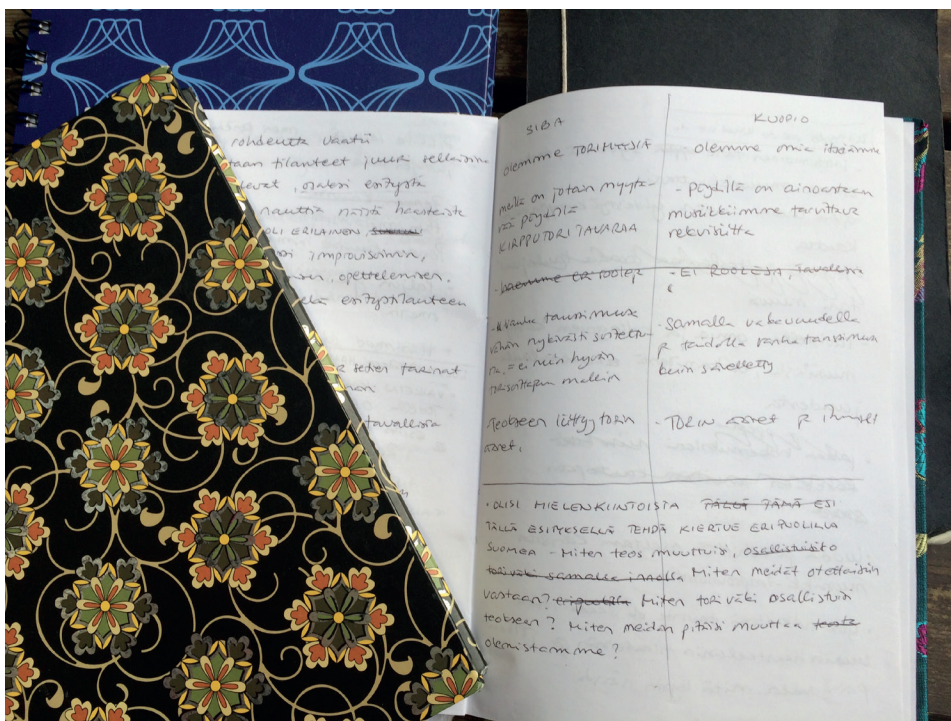 rohkeutta vaatii
taan tilanteet juuri sellaisina
osaksi esitystä
nauttia näistä haasteista
OLI ERILAINEN,
improvisoinnin,
opettelemisen.
esitystilanteen
tarinat
tavallisia
SIBA
olemme TORIMYYJIÄ
meillä on jotain myytä-
vää pöydällä
KIRPPUTORITAVARAA
vanha tanssimusa
vähän nykivästi soitettu-
na = ei niin hyvän
mallin
-Teokseen liittyy torin
äänet.
KUOPIO
olemme omia itsejämme
- pöydillä on ainoastaan
musiikkiimme tarvittava
rekvisiitta
- EI ROOLEJA
- samalla vakavuudella
ja taidolla vanha tanssimusa
kuin sävelletty
- TORIN äänet ja ihmiset
- OLISI MIELENKIINTOISTA TÄLLÄ TÄMÄ ESI
TÄLLÄ ESITYKSELLÄ TEHDÄ KIERTUE ERI PUOLILLA
SUOMEA - Miten teos muuttuisi, osallistuisiko
toriväki samalla innolla Miten meidät otettaisiin
vastaan? Miten toriväki osallistuisi
teokseen? Miten meidän pitäisi muuttaa
olemistamme?